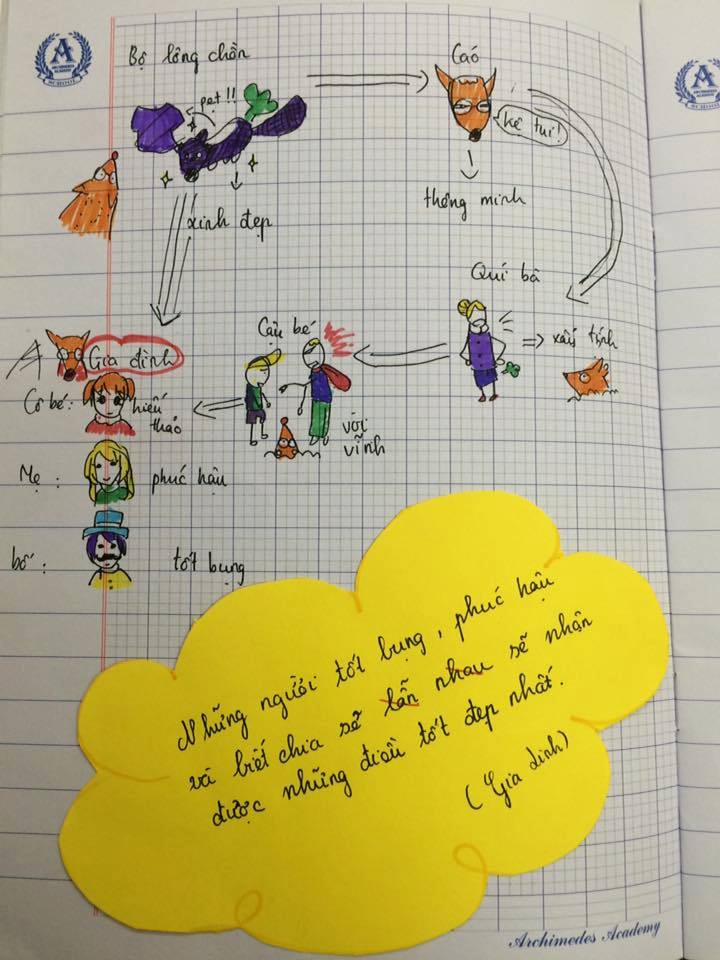 Bộ lông chồn
Cáo
pet!!
kệ tui!
xinh đẹp
thông minh
Quí bà
xấu tính
Cậu bé
Gia đình
vòi
vĩnh
Cô bé:
hiếu
thảo
Mẹ :
phúc hậu
bố :
tốt bụng
Những người tốt bụng, phúc hậu
và biết chia sẽ lẫn nhau sẽ nhận
được những điều tốt đẹp nhất.
(Gia đình)
Archimedes Academy